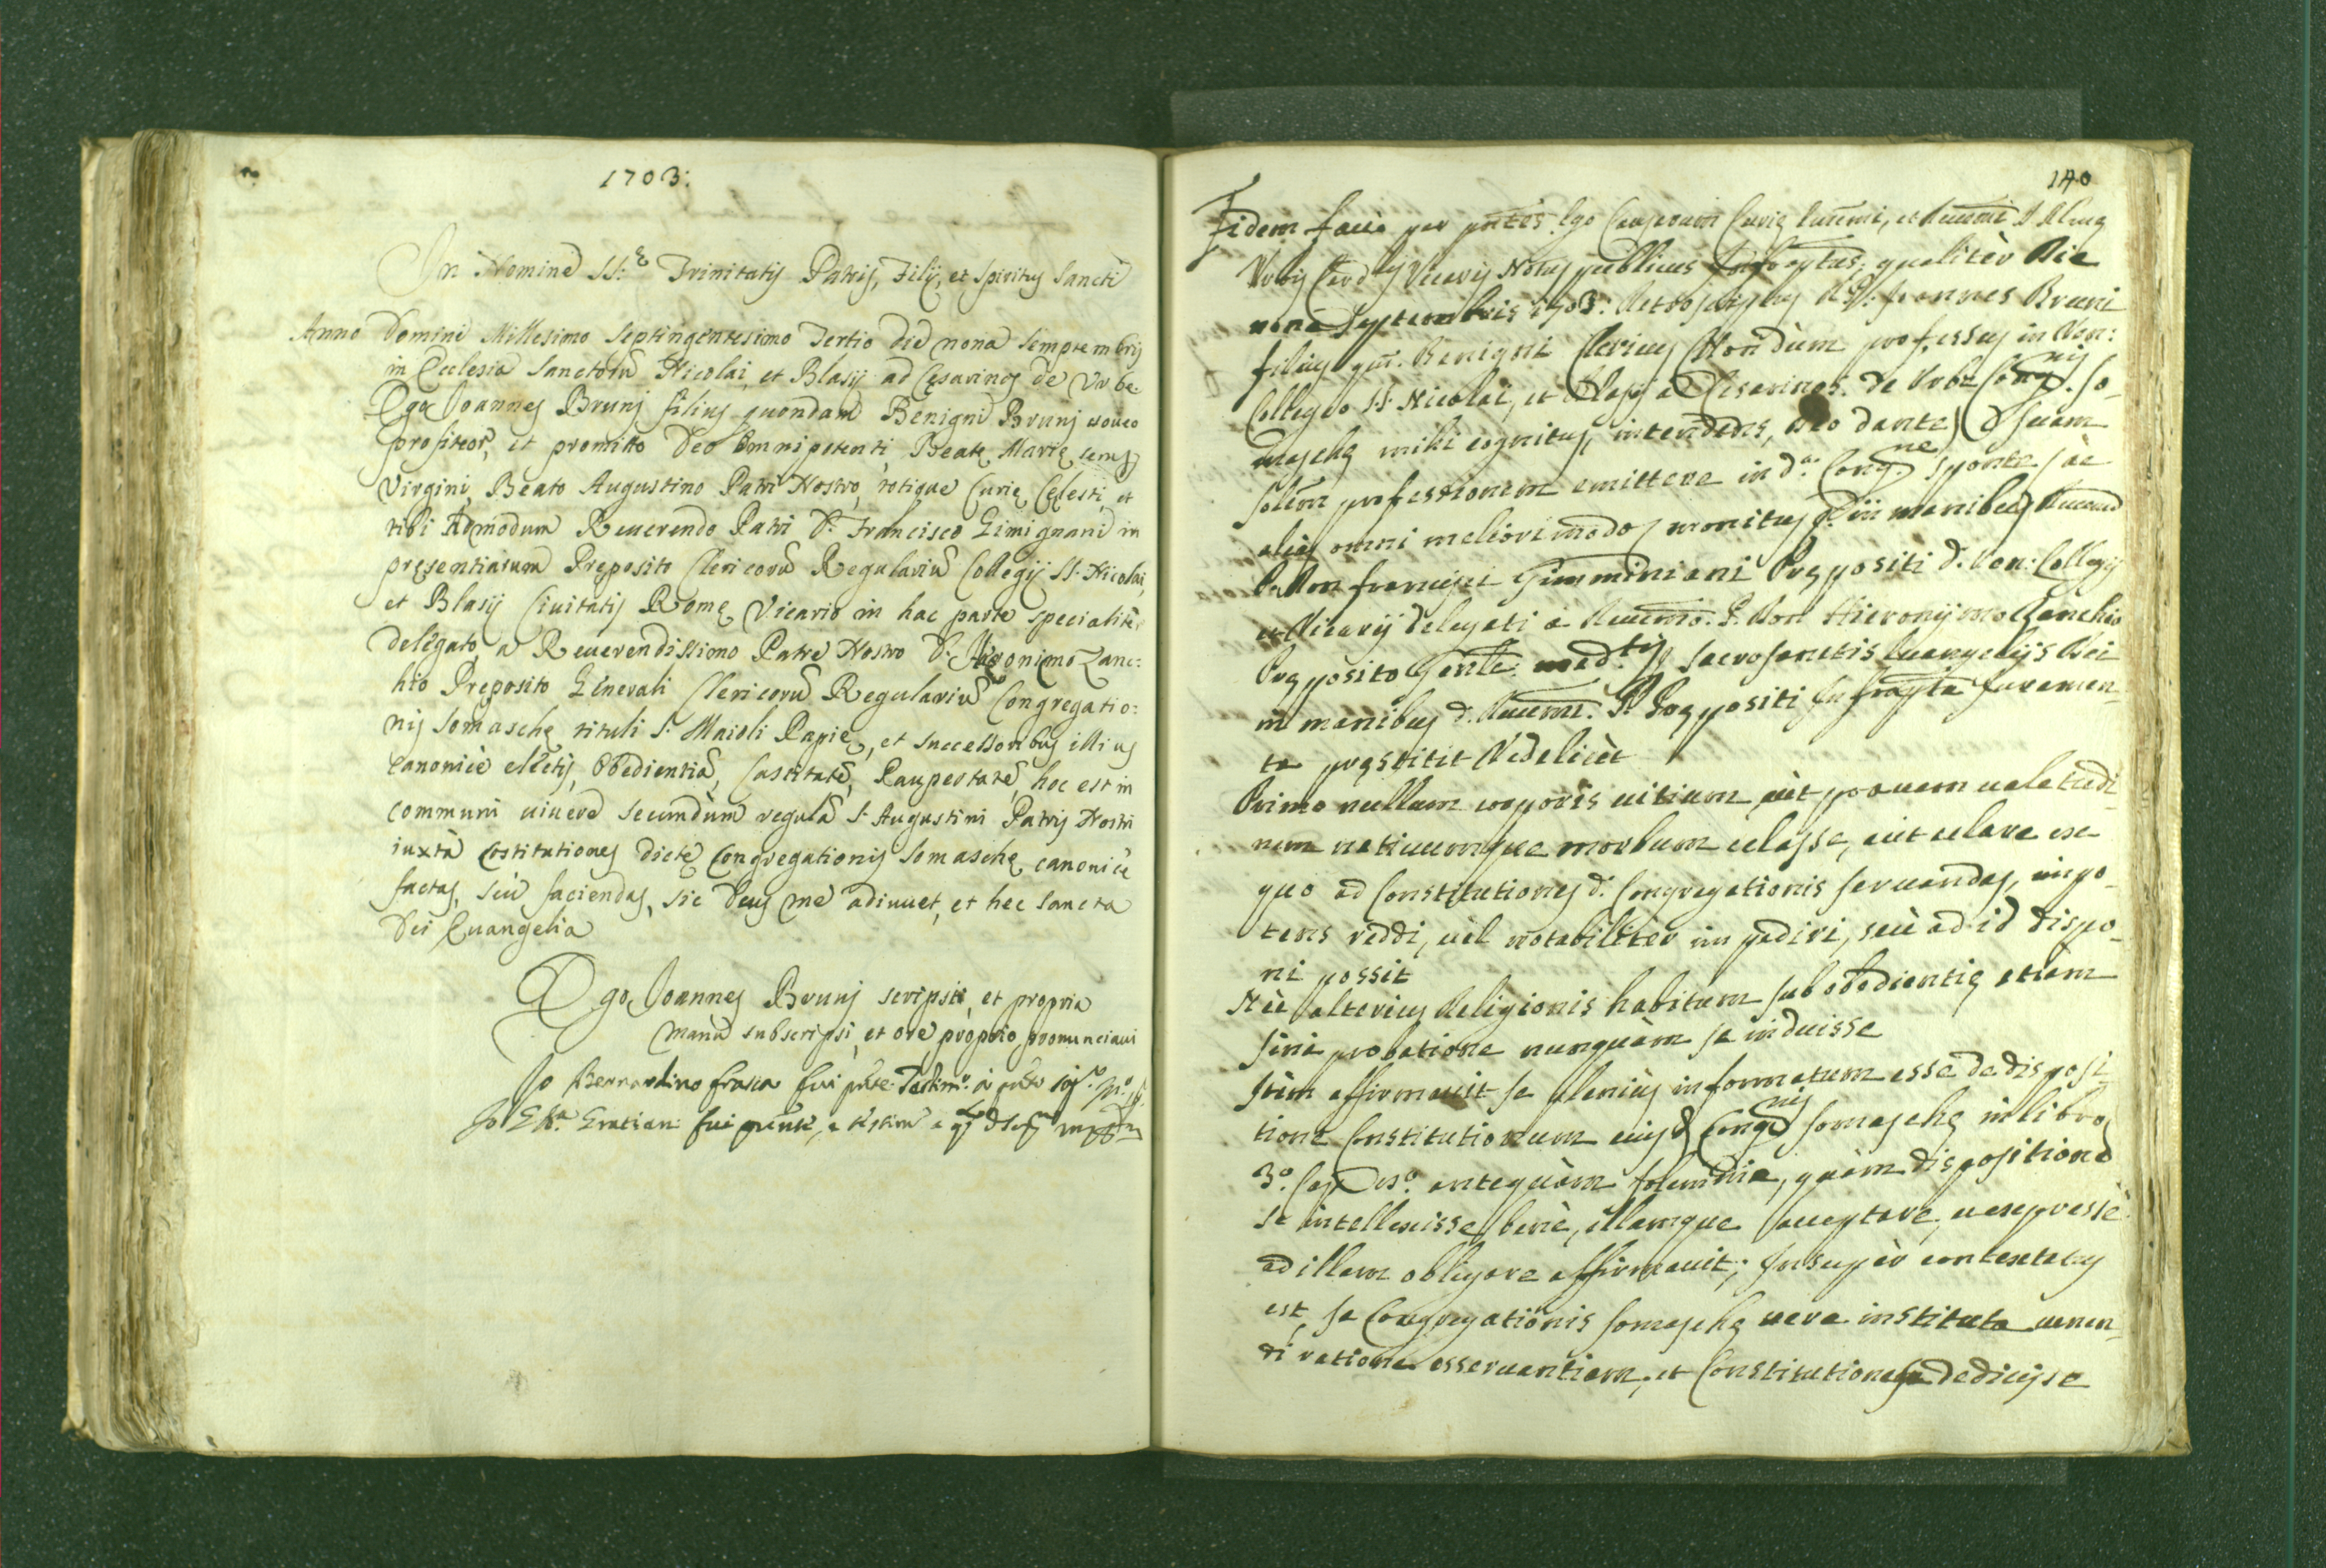 1703:
In Nomine SS:ę Trinitatis Patris, Filij, et Spiritus Sancti
Anno Domini Millesimo Septingentesimo Tertio die nona Semptembris
in Ecclesia Sanctorũ Nicolai, et Blasij ad Cęsarinos de Urbe.
Ego Joannes Brunj filius quondam Benigni Brunj voueo
profiteor, et promitto Deo Omnipotenti, Beatę Marię semp
Virgini, Beato Augustino Patri Nostro, totique Curię Cęlesti, et
tibi Admodum Reuerendo Patri D. Francisco Gimignani in
pręsentiarum Pręposito Clericorũ Regulariũ Collegij SS. Nicolai,
et Blasij Ciuitatis Romę Vicario in hac parte specialitèr
delegato, a Reuerendissimo Patre Nostro D. Hieronimo Zanc:
hio Preposito Generali Clericorũ Regulariũ Congregatio:
nis Somaschę tituli S. Maioli Papię, et successoribus illius
canonicè electis, Obedientiã, Castitatẽ, Paupertatẽ, hoc est in
communi uiuere secundùm regulã S. Augustini Patris Nostri
iuxtà Costitutiones dictę Congregationis Somaschę canonicè
factas, seù faciendas, sic Deus me adiuuet, et hec Sancta
Dei Euangelia
Ego Joannes Brunj scripsi, et propria
manu subscripsi, et ore proprio pronunciaui
Io Bernardino fui
Io fui
140
Fidem facio per pñtes Ego Curię et
Urbis Card Vicarij Notus publicus qualitèr Die
nona Septembris 1703: Joannes Bruni
filius qm. Benigni Clericus Nondùm professus in Ven:
Collegio SS. Nicolai, et Blasij a Cesarinos de Urbe Congnis So-
maschę mihi cognitus, intendens, Deo dante, suam
solem professionem emittere in da Congne sponte
alias omni meliori modo, monitus in manibus
P. Don Francisci Gimminiani Prępositi d. Ven: Collegij
et Vicarij delegati à P. Don Hieronymo Zanchio
Pręposito sacrosanctis Euangelijs Dei
in manibus d. Prępositi Juramen-
to pręstitit Videlicèt
Primo nullum corporis uitium, aùt prauam ualetudi-
nem natiuumque morbum celasse, aùt celare ex
quo ad Constitutiones d. Congregationis seruandas, impo-
tens reddi, uèl notabilitèr impediri, seù ad id dispo-
ni possit
Nèc alterius Religionis habitum sub obedientię etiàm
sine probatione nunquàm se induisse
Itèm affirmauit se pleniùs informatum esse de disposi-
tione Constitutionum Congnis Somaschę in libro
3o. Cap antequàm quàm dispositione
se intellexisse benè, illamque acceptare, expressè
ad illam obligare affirmauit; Insupèr contestatus
est, se Congregationis Somaschę uera instituta uiuen-
di ratione osseruantiam, et Constitutiones dedicisse